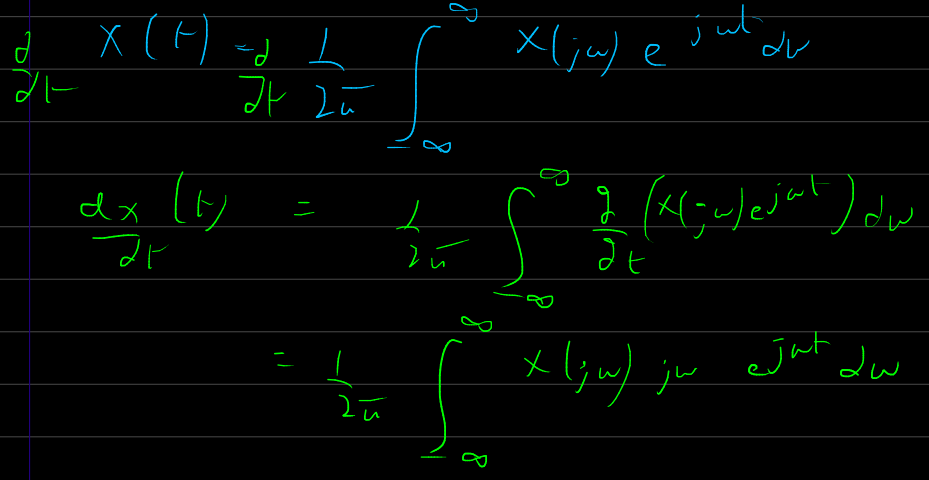 d/dt x(t) = d/dt 1/2π ∫_{-∞}^{∞} X(jω) e^{jωt} dω
dx/dt (t) = 1/2π ∫_{-∞}^{∞} ∂/∂t (X(jω) e^{jωt}) dω
= 1/2π ∫_{-∞}^{∞} X(jω) jω e^{jωt} dω